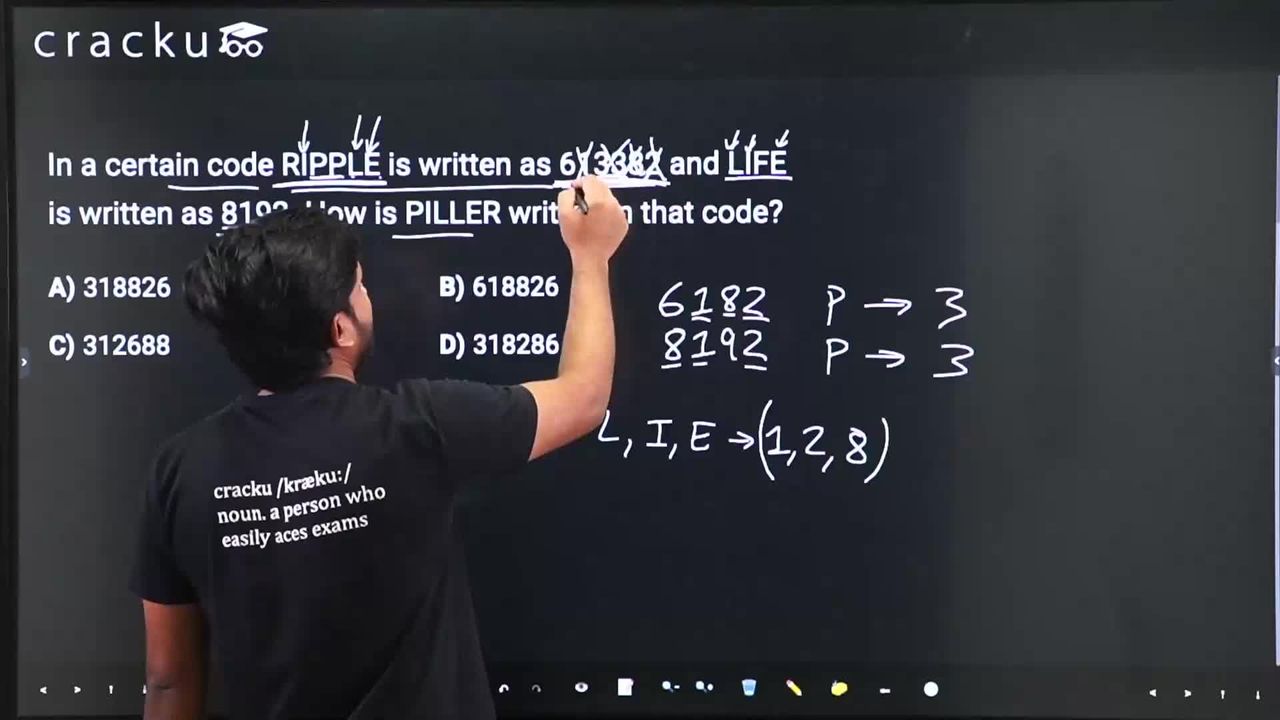 cracku
In a certain code RIPPLE is written as 613382 and LIFE
is written as 8192. How is PILLER written in that code?
A) 318826
B) 618826
C) 312688
D) 318286
6182 P → 3
8192 P → 3
L, I, E → (1, 2, 8)
cracku /kræku:/
noun. a person who
easily aces exams